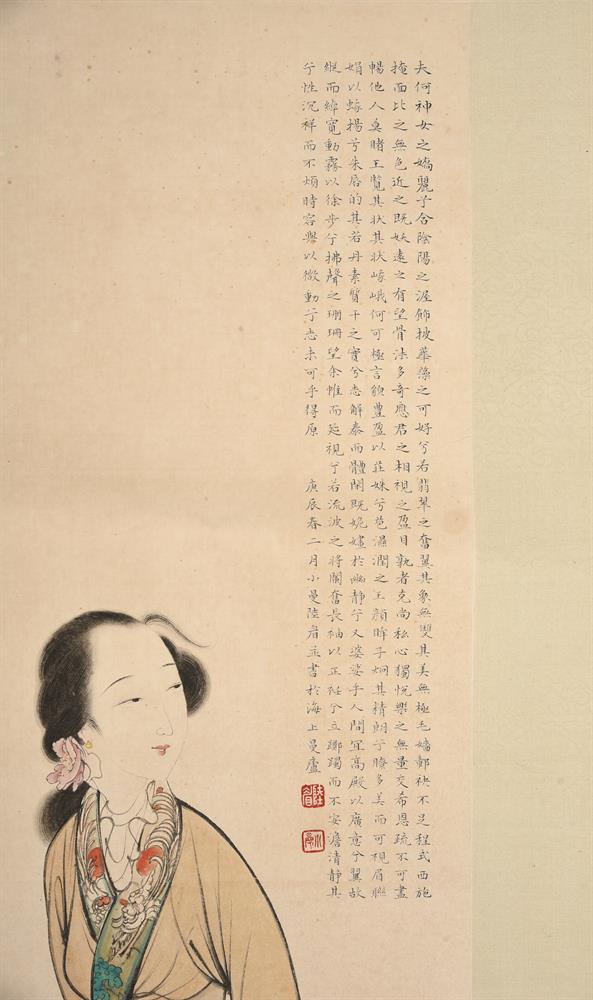 夫何神女之嬌麗兮含陰陽之渥飾披華藻之可好兮若翡翠之奮翼其象無雙其美無極毛嬙鄣袂不足程式西施
掩面比之無色近之既妖遠之有望骨法多奇應君之相視之盈目孰者克尚私心獨悅樂之無量交希恩疏不可盡
暢他人莫睹王覽其狀其狀峩峩何可極言貌豐盈以莊姝兮苞濕潤之玉顏眸子炯其精朗兮瞭多美而可視眉聯
娟以蛾揚兮朱唇的其若丹素質干之實兮志解泰而體閑既姽嫿於幽靜兮又婆娑乎人間宜高殿以廣意兮翼故
縱而綽寬動霧以徐步兮拂聲之珊珊望余帷而延視兮若流波之將瀾奮長袖以正衽兮立躑躅而不安澹清靜其
兮性沉祥而不煩時容與以微動兮志未可乎得原 庚辰春二月小曼陸眉並書於海上曼廬
陸眉
小曼